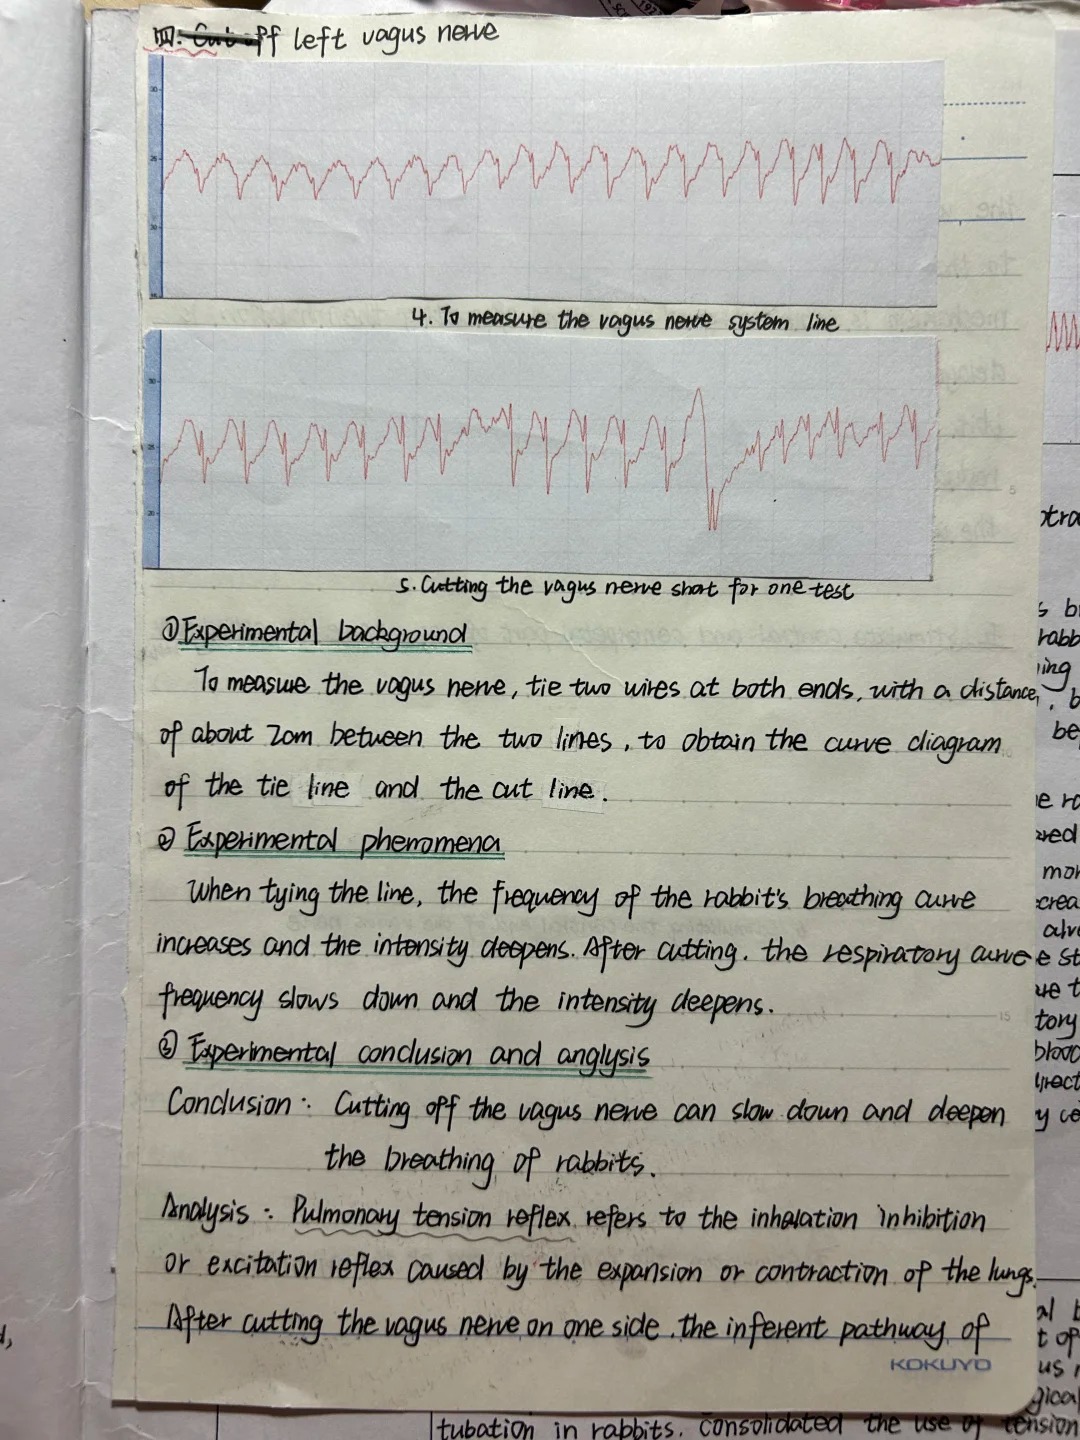 四. Cut off left vagus nerve
4. To measure the vagus nerve system line
5. Cutting the vagus nerve short for one test
① Experimental background
To measure the vagus nerve, tie two wires at both ends, with a distance
of about 2cm between the two lines, to obtain the curve diagram
of the tie line and the cut line.
② Experimental phenomena
When tying the line, the frequency of the rabbit's breathing curve
increases and the intensity deepens. After cutting, the respiratory curve
frequency slows down and the intensity deepens.
③ Experimental conclusion and anglysis
Conclusion: Cutting off the vagus nerve can slow down and deepen
the breathing of rabbits.
Analysis: Pulmonary tension reflex refers to the inhalation inhibition
or excitation reflex caused by the expansion or contraction of the lungs.
After cutting the vagus nerve on one side, the inferent pathway of
KOKUYO
tubation in rabbits. Consolidated the use of tension